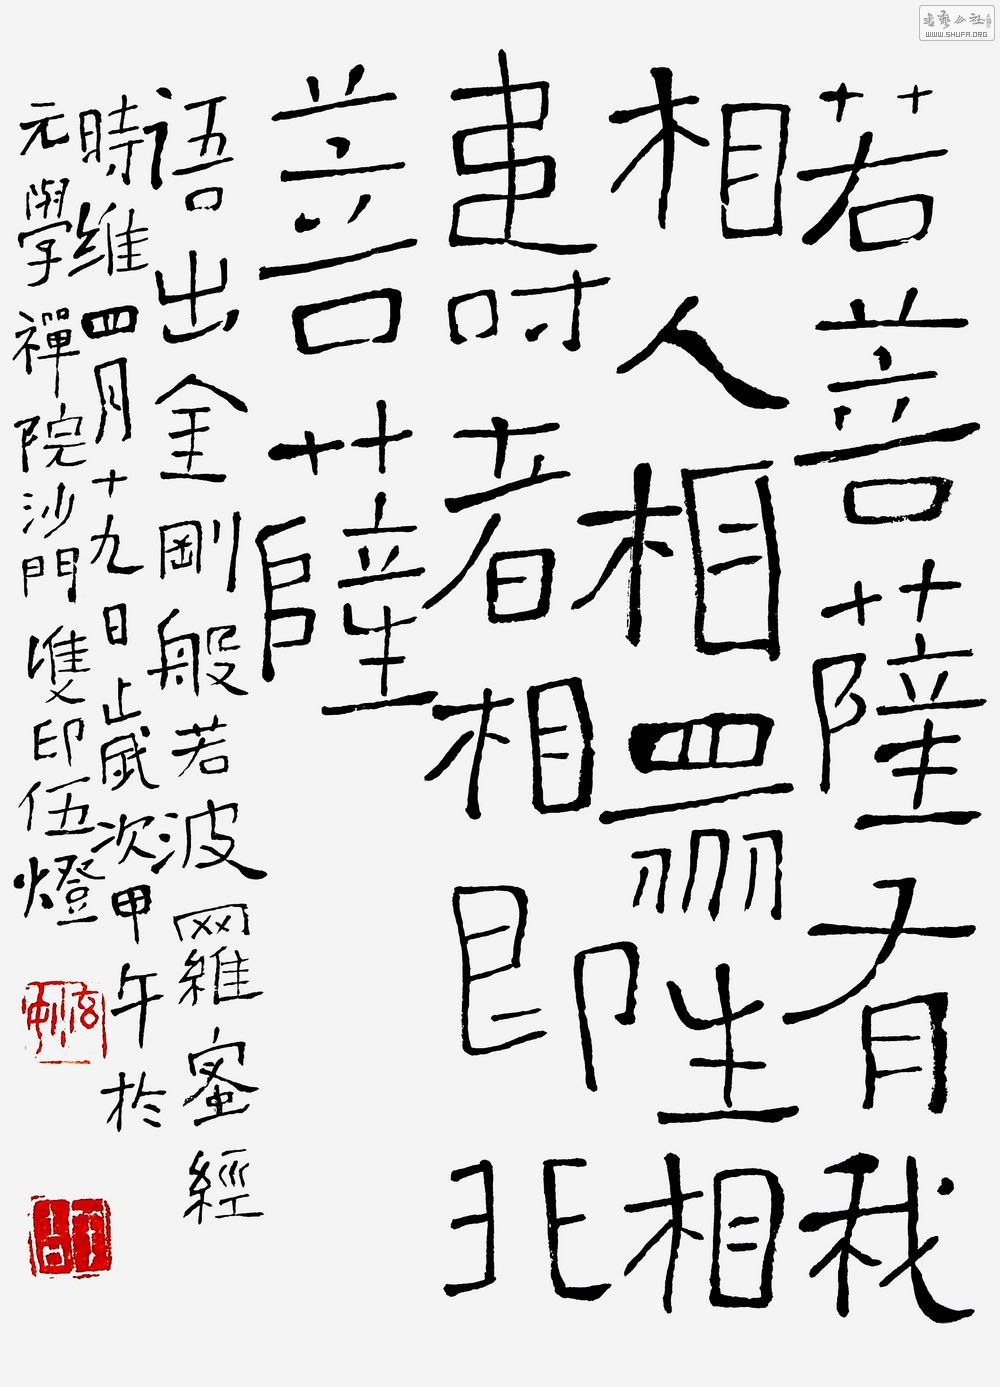 若菩薩有我
相人相眾生相
壽者相即非
菩薩
语出金剛般若波羅蜜經
時維四月十九日歲次甲午於
元學禪院沙門雙印伍燈
書藝公社
WWW.SHUFA.ORG